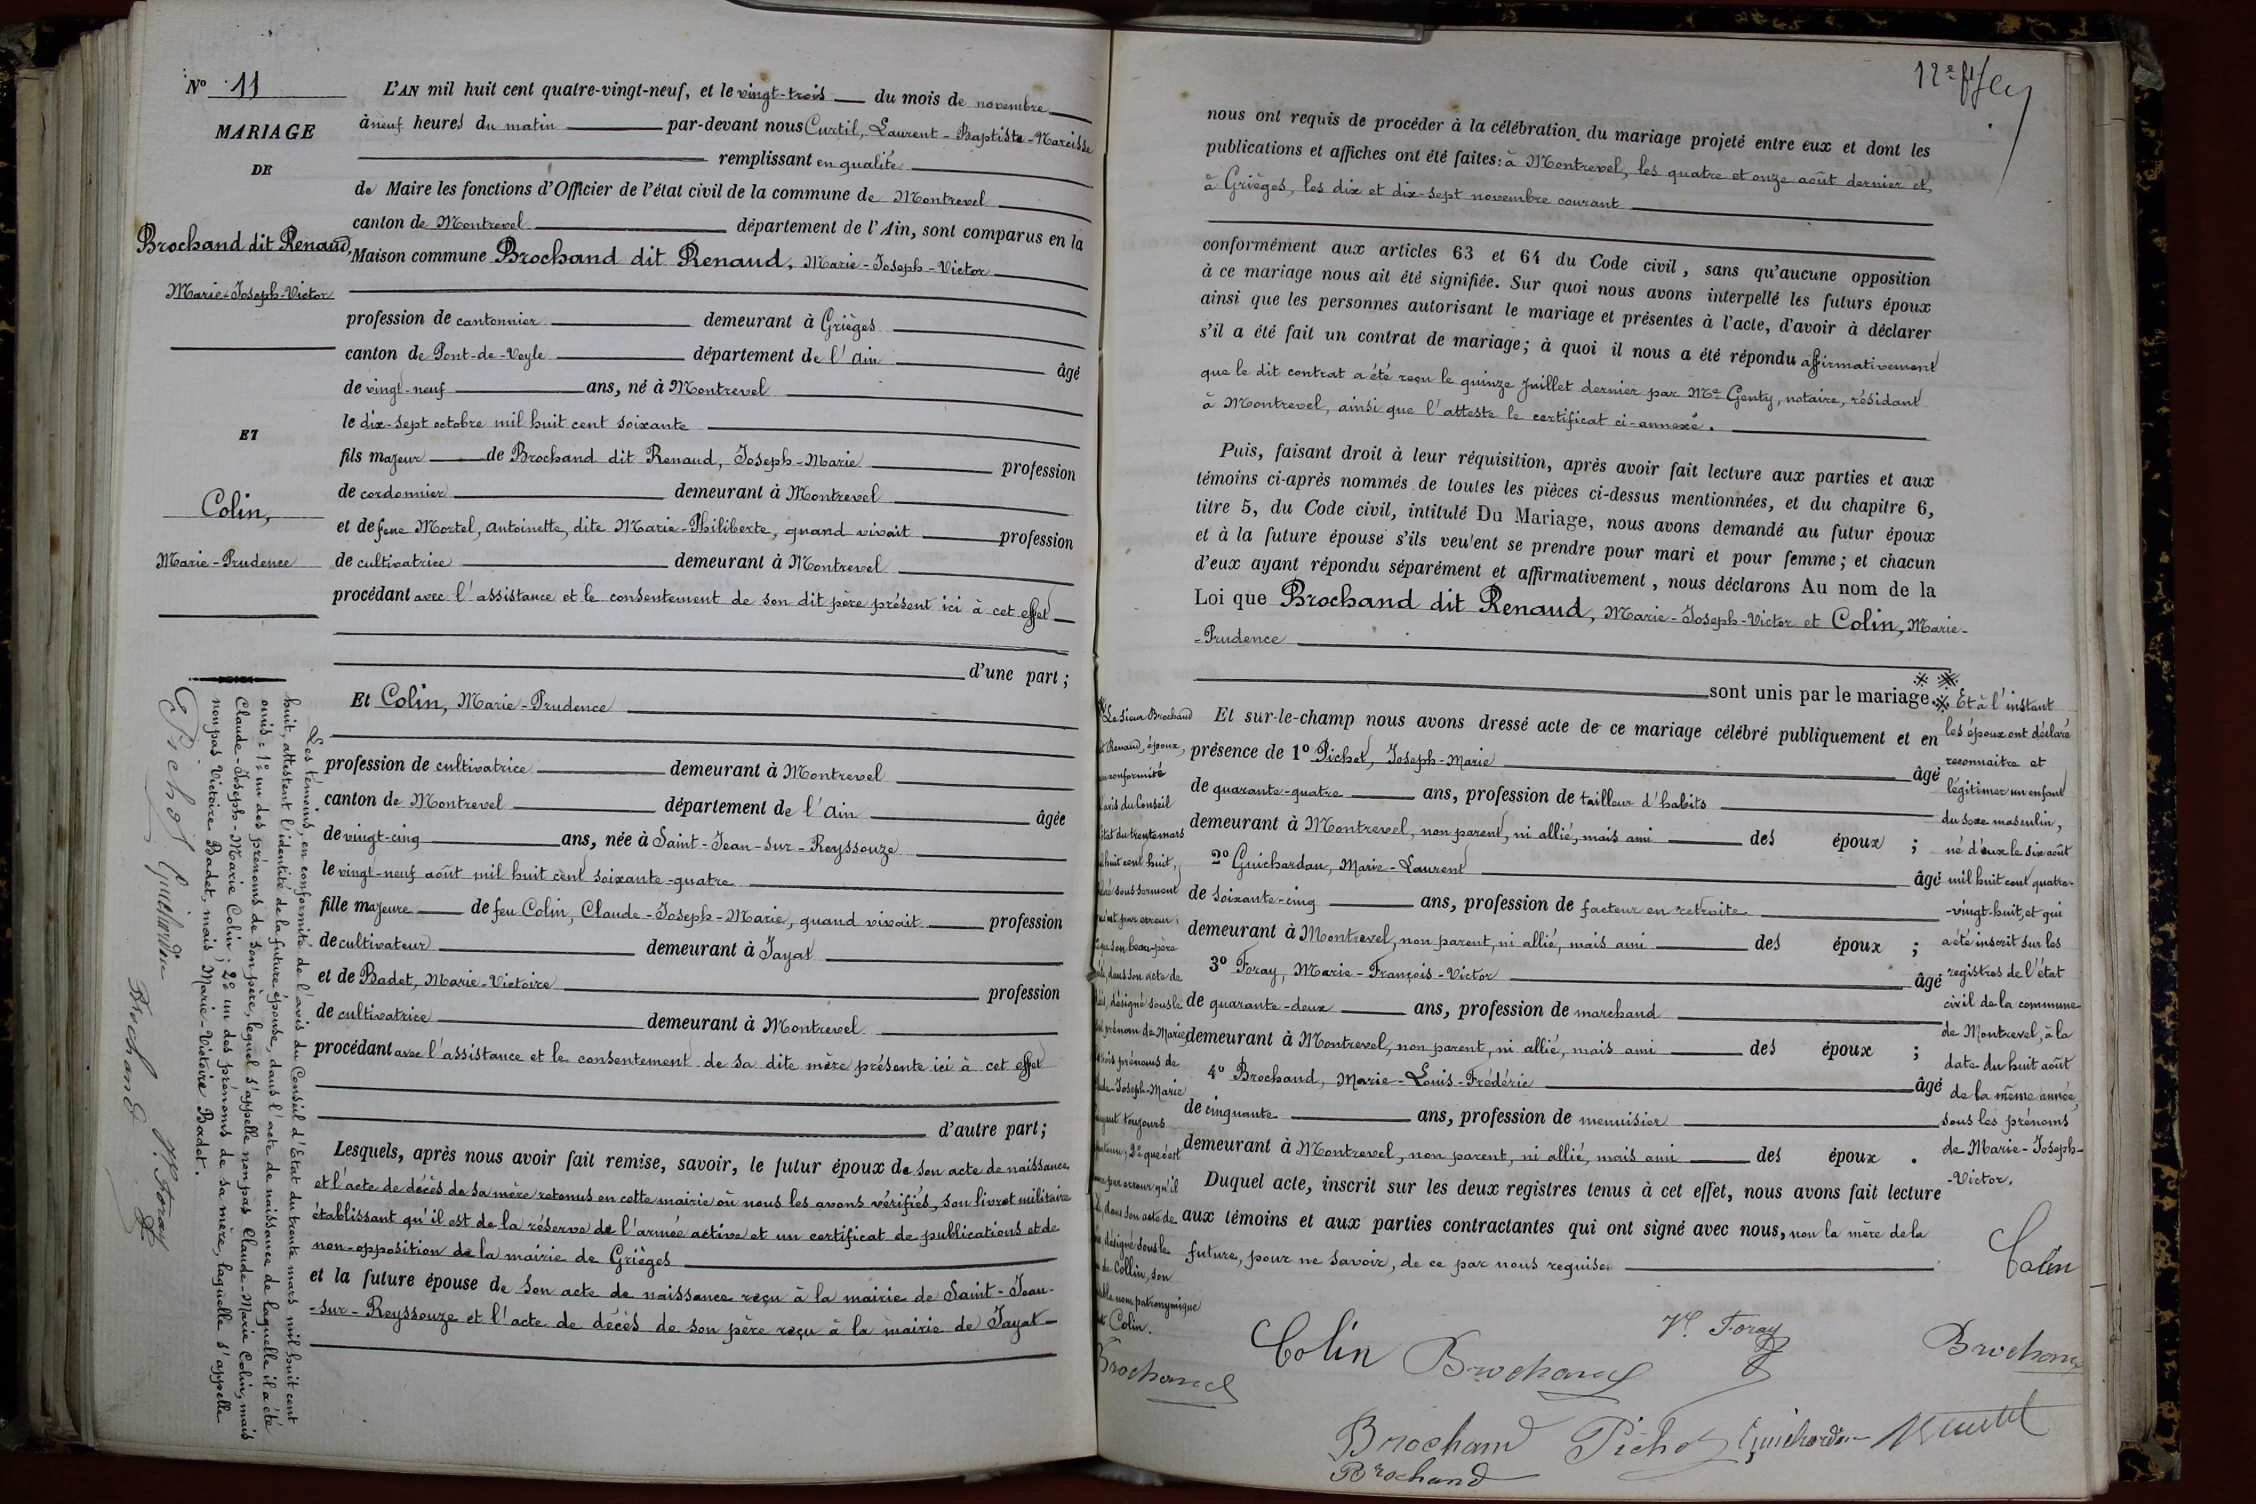 Nº 11
MARIAGE
DE
Brochand dit Renaud,
Marie-Joseph-Victor
ET
Colin,
Marie-Prudence
L'AN mil huit cent quatre-vingt-neuf, et le vingt-trois du mois de novembre
à neuf heures du matin par-devant nous Curtil, Laurent-Baptiste-Narcisse
remplissant en qualité
de Maire les fonctions d'Officier de l'état civil de la commune de Montrevel
canton de Montrevel département de l'Ain, sont comparus en la
Maison commune Brochand dit Renaud, Marie-Joseph-Victor
profession de cantonnier demeurant à Grièges
canton de Pont-de-Veyle département de l'Ain âgé
de vingt-neuf ans, né à Montrevel
le dix-sept octobre mil huit cent soixante
fils majeur de Brochand dit Renaud, Joseph-Marie profession
de cordonnier demeurant à Montrevel
et de feue Mortel, Antoinette, dite Marie-Philiberte, quand vivait profession
de cultivatrice demeurant à Montrevel
procédant avec l'assistance et le consentement de son dit père présent ici à cet effet
d'une part ;
Et Colin, Marie-Prudence
profession de cultivatrice demeurant à Montrevel
canton de Montrevel département de l'Ain âgée
de vingt-cinq ans, née à Saint-Jean-sur-Reyssouze
le vingt-neuf août mil huit cent soixante-quatre
fille majeure de feu Colin, Claude-Joseph-Marie, quand vivait profession
de cultivateur demeurant à Jayat
et de Badet, Marie-Victoire profession
de cultivatrice demeurant à Montrevel
procédant avec l'assistance et le consentement de sa dite mère présente ici à cet effet
d'autre part ;
Lesquels, après nous avoir fait remise, savoir, le futur époux de son acte de naissance
et l'acte de décès de sa mère retenus en cette mairie où nous les avons vérifiés, son livret militaire
établissant qu'il est de la réserve de l'armée active et un certificat de publications et de
non-opposition de la mairie de Grièges
et la future épouse de son acte de naissance reçu à la mairie de Saint-Jean-
-sur-Reyssouze et l'acte de décès de son père reçu à la mairie de Jayat
Les témoins, en conformité de l'avis du Conseil d'Etat du trente mars mil huit cent
huit, attestent l'identité de la future épouse, dans l'acte de naissance de laquelle il a été
omis : 1º un des prénoms de son père, lequel s'appelle non pas Claude-Marie Colin, mais
Claude-Joseph-Marie Colin ; 2º un des prénoms de sa mère, laquelle s'appelle
non pas Victoire Badet, mais Marie-Victoire Badet.
Pichot Guichardan
Brochand Vr. Foray
nous ont requis de procéder à la célébration du mariage projeté entre eux et dont les
publications et affiches ont été faites : à Montrevel, les quatre et onze août dernier et,
à Grièges, les dix et dix-sept novembre courant
conformément aux articles 63 et 64 du Code civil, sans qu'aucune opposition
à ce mariage nous ait été signifiée. Sur quoi nous avons interpellé les futurs époux
ainsi que les personnes autorisant le mariage et présentes à l'acte, d'avoir à déclarer
s'il a été fait un contrat de mariage ; à quoi il nous a été répondu affirmativement
que le dit contrat a été reçu le quinze juillet dernier par Me Genty, notaire, résidant
à Montrevel, ainsi que l'atteste le certificat ci-annexé.
Puis, faisant droit à leur réquisition, après avoir fait lecture aux parties et aux
témoins ci-après nommés de toutes les pièces ci-dessus mentionnées, et du chapitre 6,
titre 5, du Code civil, intitulé Du Mariage, nous avons demandé au futur époux
et à la future épouse s'ils veulent se prendre pour mari et pour femme ; et chacun
d'eux ayant répondu séparément et affirmativement, nous déclarons Au nom de la
Loi que Brochand dit Renaud, Marie-Joseph-Victor et Colin, Marie-
-Prudence
sont unis par le mariage.
Et sur-le-champ nous avons dressé acte de ce mariage célébré publiquement et en
présence de 1º Pichot, Joseph-Marie âgé
de quarante-quatre ans, profession de tailleur d'habits
demeurant à Montrevel, non parent, ni allié, mais ami des époux ;
2º Guichardan, Marie-Laurent âgé
de soixante-cinq ans, profession de facteur en retraite
demeurant à Montrevel, non parent, ni allié, mais ami des époux ;
3º Foray, Marie-François-Victor âgé
de quarante-deux ans, profession de marchand
demeurant à Montrevel, non parent, ni allié, mais ami des époux ;
4º Brochand, Marie-Louis-Frédéric âgé
de cinquante ans, profession de menuisier
demeurant à Montrevel, non parent, ni allié, mais ami des époux .
Duquel acte, inscrit sur les deux registres tenus à cet effet, nous avons fait lecture
aux témoins et aux parties contractantes qui ont signé avec nous, non la mère de la
future, pour ne savoir, de ce par nous requise
Le sieur Brochand
Renaud, époux,
conformité
l'avis du Conseil
état du trente mars
huit cent huit,
sous serment
par erreur
son beau-père
dans son acte de
désigné sous le
prénom de Marie
prénoms de
Joseph-Marie
toujours
2º que c'est
par erreur qu'il
dans son acte de
désigné sous le
de Collin, son
nom patronymique
Colin.
Brochand
Et à l'instant
les époux ont déclaré
reconnaitre et
légitimer un enfant
du sexe masculin,
né d'eux le six août
mil huit cent quatre-
-vingt-huit, et qui
a été inscrit sur les
registres de l'état
civil de la commune
de Montrevel, à la
date du huit août
de la même année,
sous les prénoms
de Marie-Joseph-
-Victor.
Colin
Brochand
Colin Brochand Vr. Foray
Brochand Pichot Guichardan
Brochand